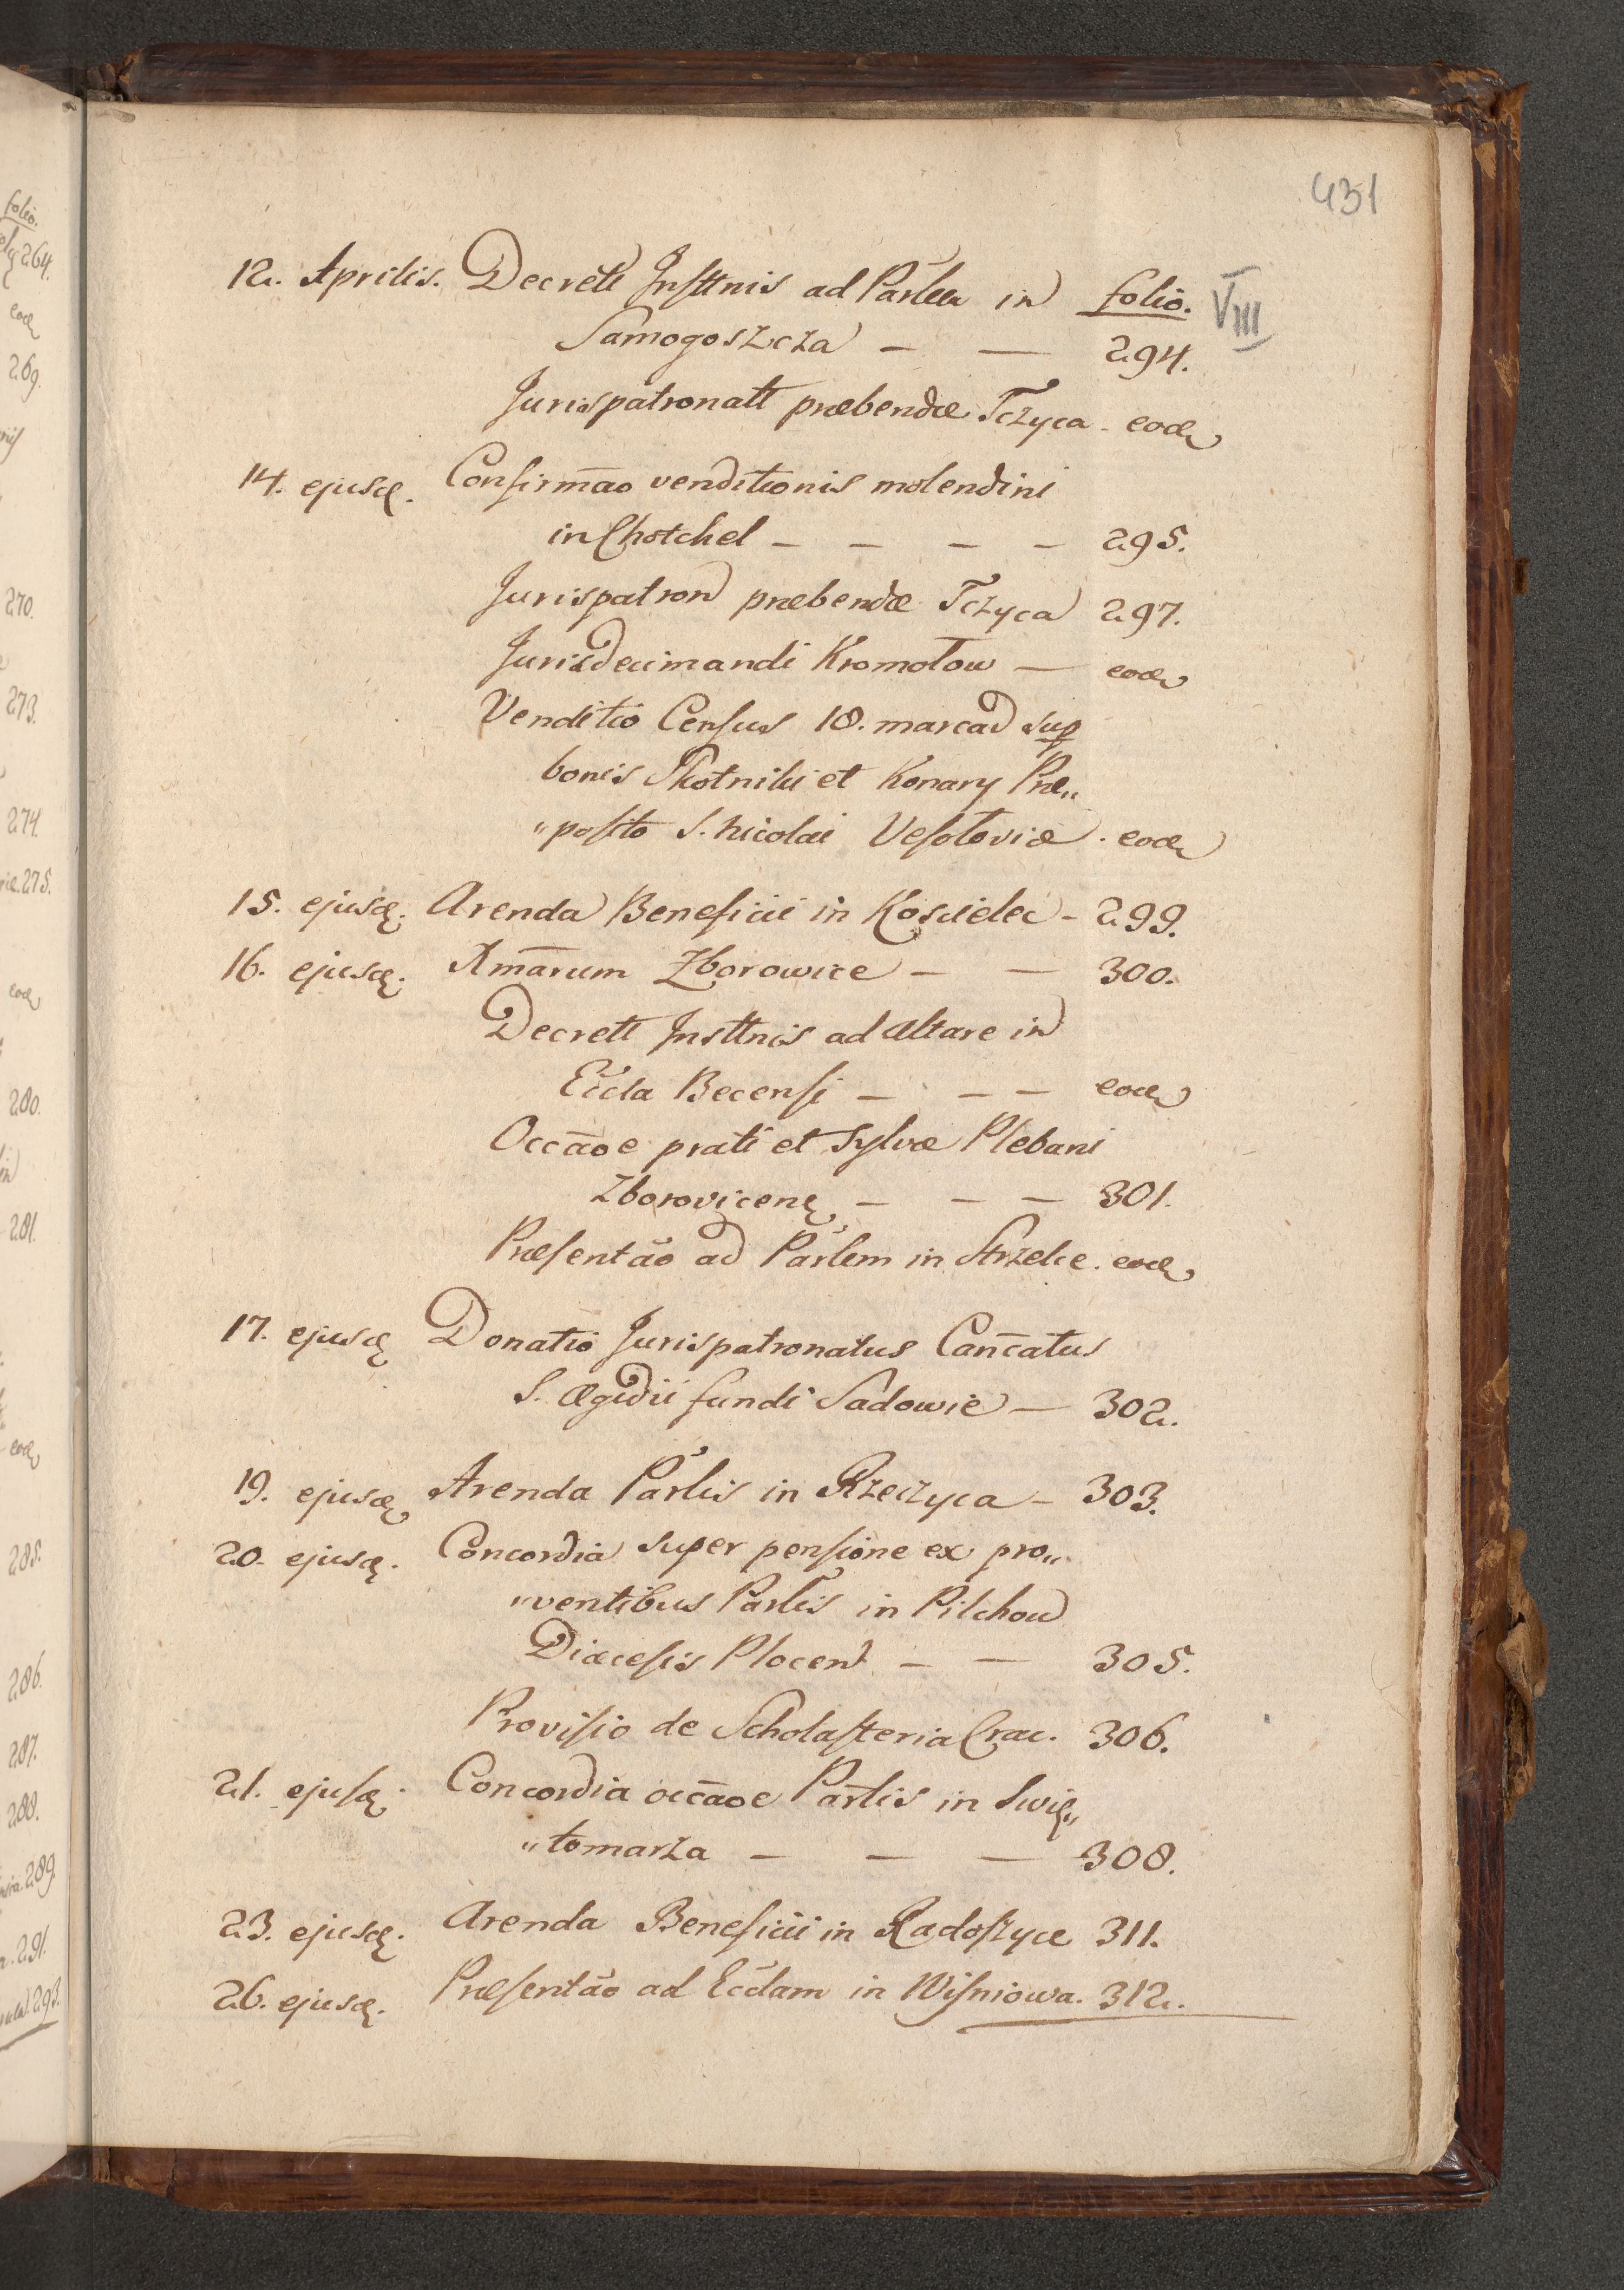 431
12. Aprilis. Decrett Insttnis ad Parlem in folio. VIII
Samogoszcza — — 294.
Jurispatronatt præbendæ Tczyca - eodę
14. ejusdę. Confirmāo venditionis molendini
in Chotchel — — — — 295.
Jurispatron præbendæ Tczyca 297.
Jurisdecimandi Kromołow — eodę
Venditio Census 18. marcad sup
bonis Skotniki et Konary Præ„
„posito S. Nicolai Vesołoviæ . eodę
15. ejusdę. Arenda Beneficii in Koscielec - 299.
16. ejusdę. Armārum Zborowice — — 300.
Decrett Insttnis ad altare in
Eccla Becensi — — — eodę
Occāoe prati et Sylvæ Plebani
Zborovicenę — — — 301.
Præsentāo ad Parlem in Strzelce . eodę
17. ejusdę Donatio Jurispatronatus Cančatus
S. Ægidii fundi Sadowie — 302.
19. ejusdę Arenda Parlis in Rzeczyca - 303.
20. ejusdę. Concordia super pensione ex pro„
„ventibus Parlis in Pilchow
Diæcesis Plocen — — 305.
Provisio de Scholasteria Crac. 306.
21. ejusdę. Concordia occāoe Parlis in Swię„
„tomarza — — — 308.
23. ejusdę. Arenda Beneficii in Radoszyce 311.
26. ejusdę. Præsentāo ad Ecclam in Wisniowa. 312.
folio.
264.
eodę
269.
270.
273.
274.
275.
eodę
280.
281.
eodę
285.
286.
287.
288.
289.
291.
293.